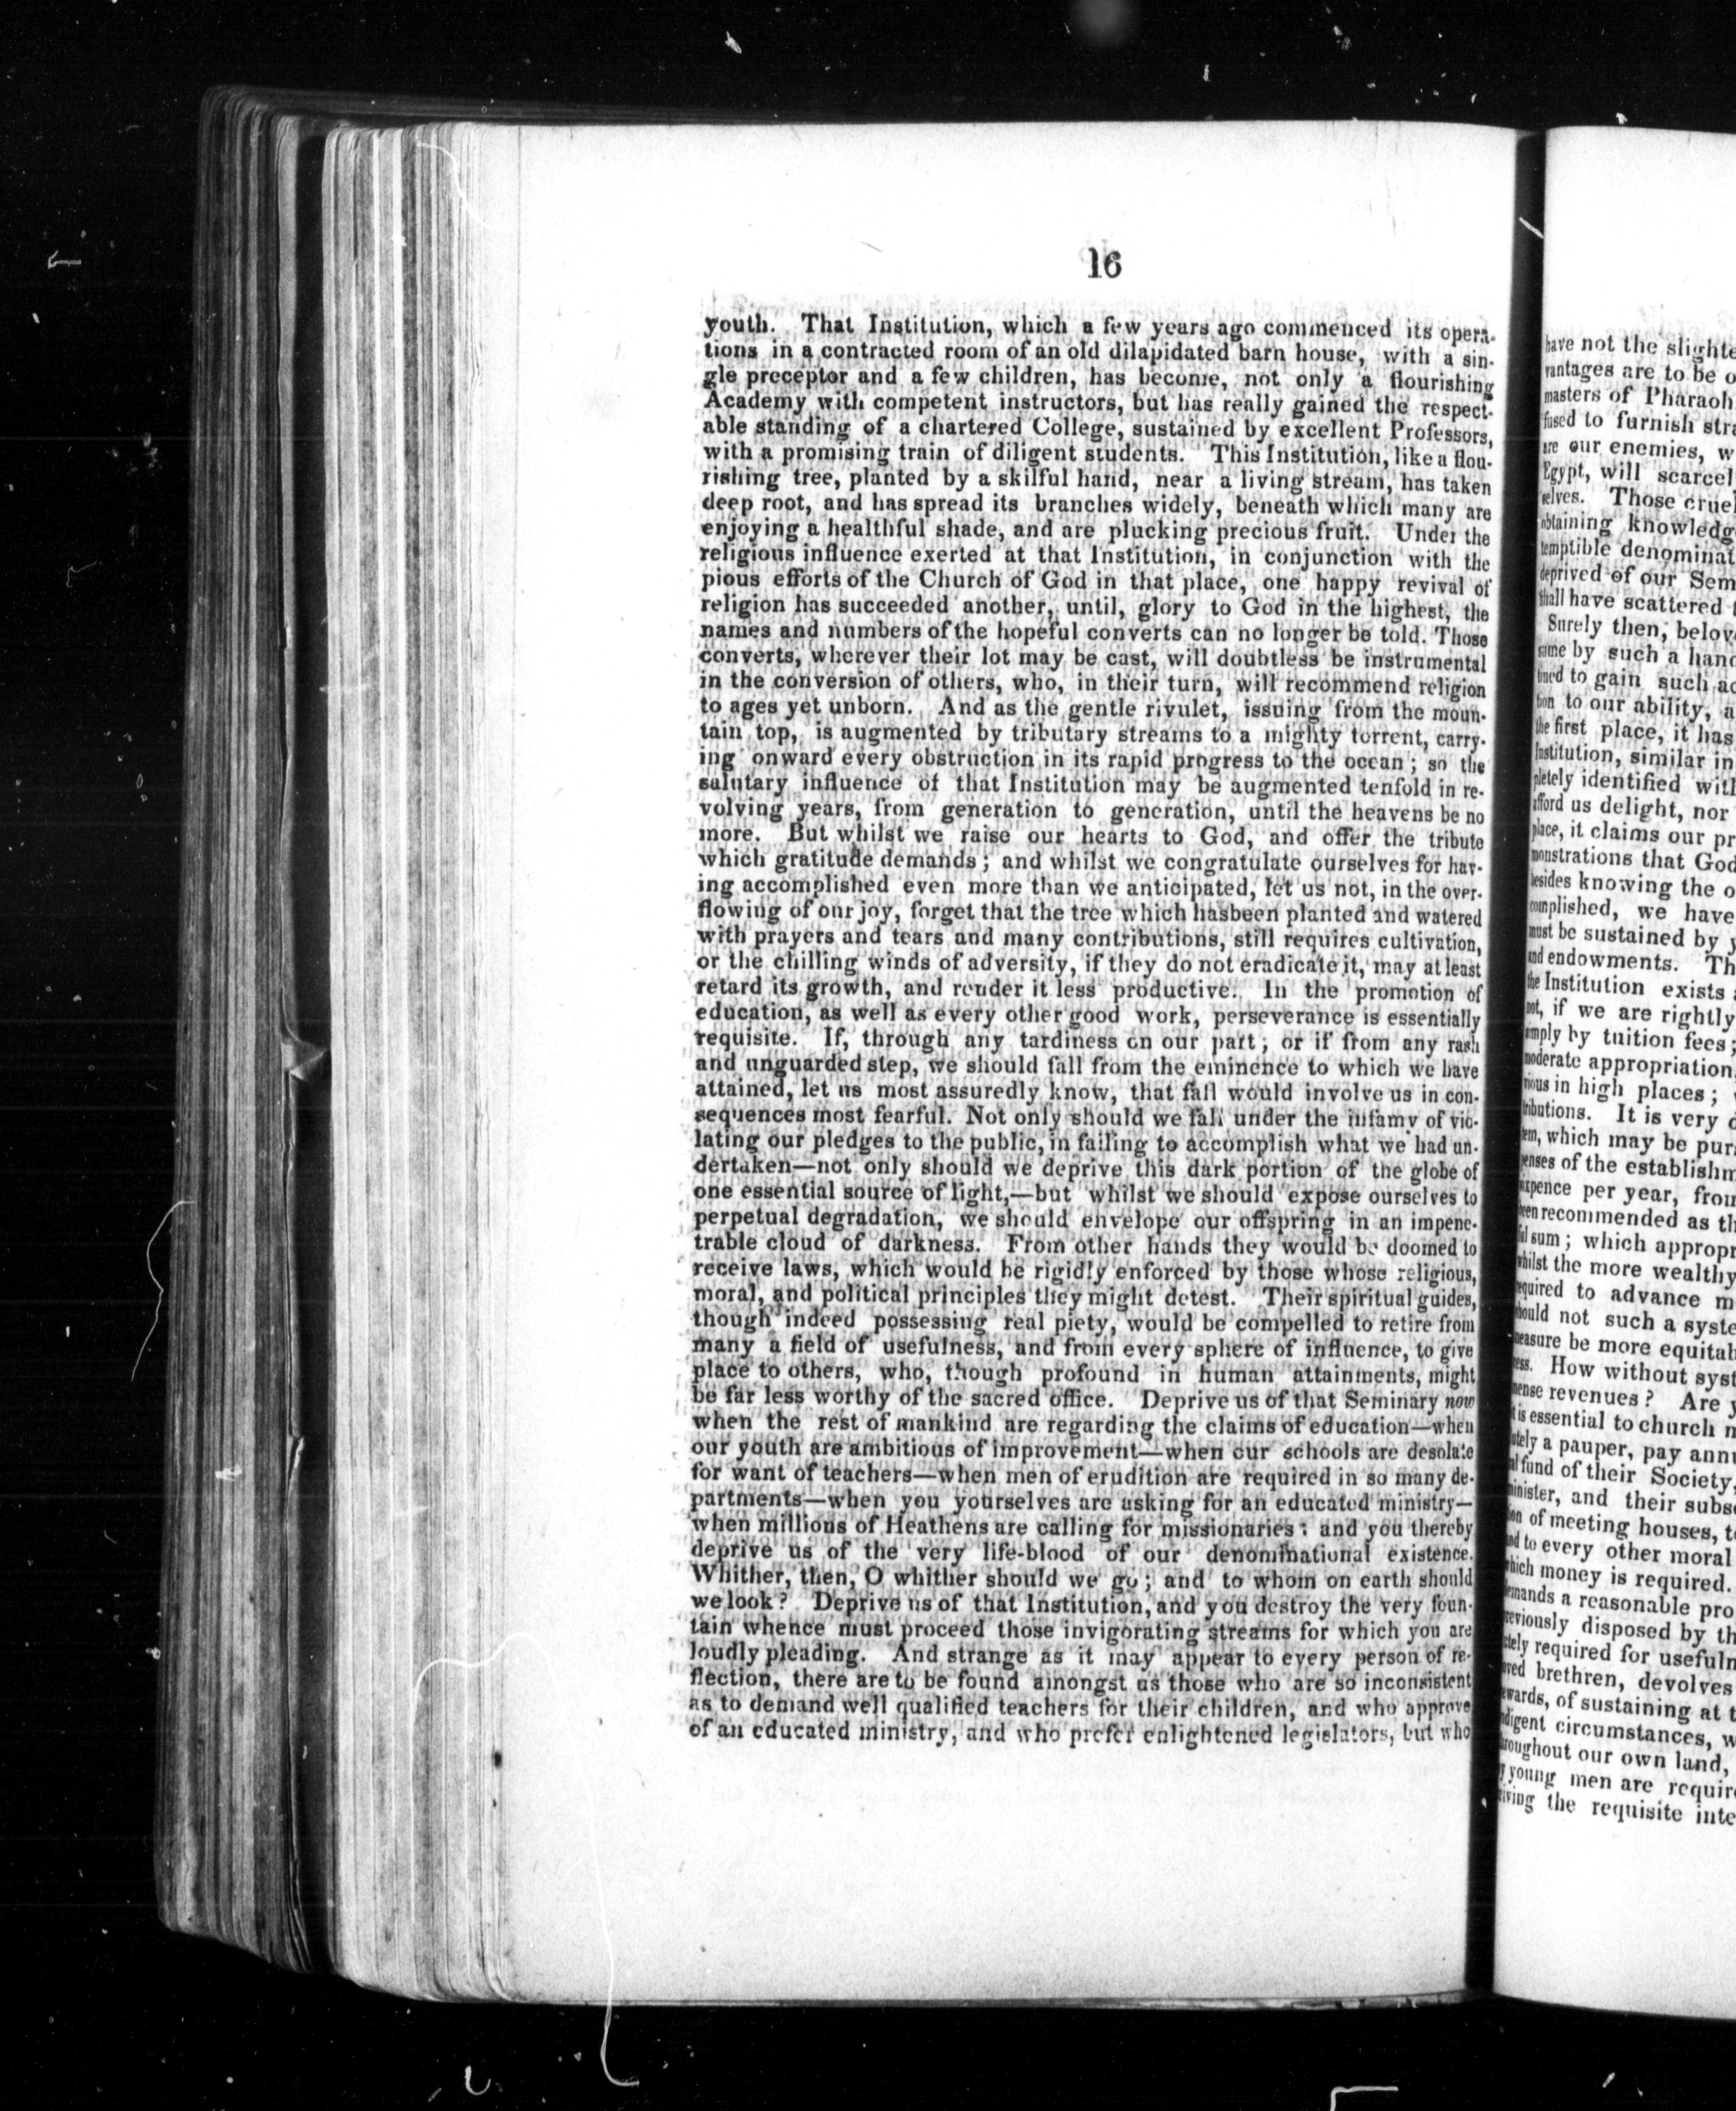 16
youth. That Institution, which a few years ago commenced its opera-
tions in a contracted room of an old dilapidated barn house, with a sin-
gle preceptor and a few children, has become, not only a flourishing
Academy with competent instructors, but has really gained the respect-
able standing of a chartered College, sustained by excellent Professors,
with a promising train of diligent students. This Institution, like a flou-
rishing tree, planted by a skilful hand, near a living stream, has taken
deep root, and has spread its branches widely, beneath which many are
enjoying a healthful shade, and are plucking precious fruit. Under the
religious influence exerted at that Institution, in conjunction with the
pious efforts of the Church of God in that place, one happy revival of
religion has succeeded another, until, glory to God in the highest, the
names and numbers of the hopeful converts can no longer be told. Those
converts, wherever their lot may be cast, will doubtless be instrumental
in the conversion of others, who, in their turn, will recommend religion
to ages yet unborn. And as the gentle rivulet, issuing from the moun-
tain top, is augmented by tributary streams to a mighty torrent, carry-
ing onward every obstruction in its rapid progress to the ocean; so the
salutary influence of that Institution may be augmented tenfold in re-
volving years, from generation to generation, until the heavens be no
more. But whilst we raise our hearts to God, and offer the tribute
which gratitude demands; and whilst we congratulate ourselves for hav-
ing accomplished even more than we anticipated, let us not, in the over-
flowing of our joy, forget that the tree which hasbeen planted and watered
with prayers and tears and many contributions, still requires cultivation,
or the chilling winds of adversity, if they do not eradicate it, may at least
retard its growth, and render it less productive. In the promotion of
education, as well as every other good work, perseverance is essentially
requisite. If, through any tardiness on our part; or if from any rash
and unguarded step, we should fall from the eminence to which we have
attained, let us most assuredly know, that fall would involve us in con-
sequences most fearful. Not only should we fall under the infamy of vio-
lating our pledges to the public, in failing to accomplish what we had un-
dertaken—not only should we deprive this dark portion of the globe of
one essential source of light,—but whilst we should expose ourselves to
perpetual degradation, we should envelope our offspring in an impene-
trable cloud of darkness. From other hands they would be doomed to
receive laws, which would be rigidly enforced by those whose religious,
moral, and political principles they might detest. Their spiritual guides,
though indeed possessing real piety, would be compelled to retire from
many a field of usefulness, and from every sphere of influence, to give
place to others, who, though profound in human attainments, might
be far less worthy of the sacred office. Deprive us of that Seminary now
when the rest of mankind are regarding the claims of education—when
our youth are ambitious of improvement—when our schools are desolate
for want of teachers—when men of erudition are required in so many de-
partments—when you yourselves are asking for an educated ministry—
when millions of Heathens are calling for missionaries: and you thereby
deprive us of the very life-blood of our denominational existence.
Whither, then, O whither should we go; and to whom on earth should
we look? Deprive us of that Institution, and you destroy the very foun-
tain whence must proceed those invigorating streams for which you are
loudly pleading. And strange as it may appear to every person of re-
flection, there are to be found amongst us those who are so inconsistent
as to demand well qualified teachers for their children, and who approve
of an educated ministry, and who prefer enlightened legislators, but who
have not the
vantages are to be
masters of Pharaoh
to furnish
our enemies,
Egypt, will
Those
obtaining
temptible
deprived of our
shall have scattered
Surely then,
by such a
to gain such
to our ability,
the first place, it has
Institution, similar in
identified
afford us delight, nor
place, it claims our
monstrations that God
besides knowing the
complished, we have
must be sustained by
and endowments.
the Institution exists
not, if we are rightly
simply by tuition fees;
moderate appropriation,
in high places;
tributions. It is very
which may be
of the
per year, from
been recommended as
sum; which
whilst the more wealthy
required to advance
should not such a
measure be more
How without
revenues? Are
is essential to church
a pauper, pay
fund of their Society,
minister, and their
of meeting houses,
and to every other moral
which money is required.
demands a reasonable
previously disposed by
required for
brethren, devolves
of sustaining at
circumstances,
throughout our own land,
young men are
the requisite